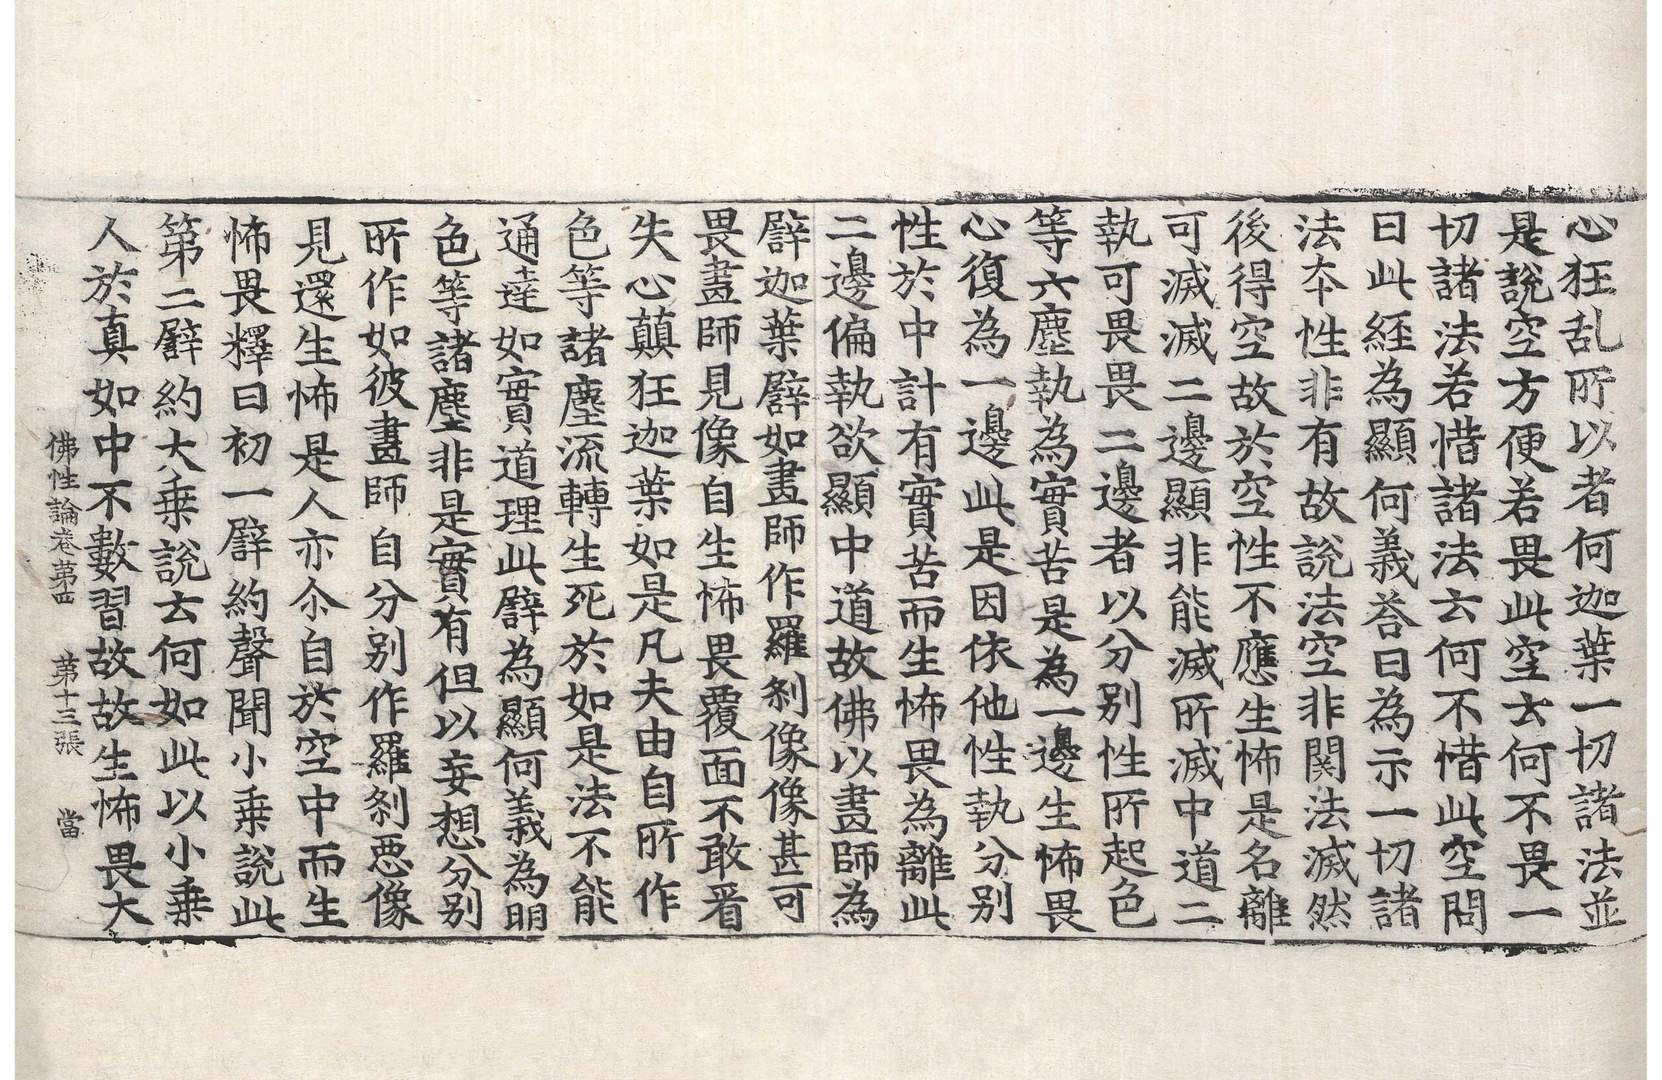 心狂乱所以者何迦葉一切諸法並
是說空方便若畏此空云何不畏一
切諸法若惜諸法云何不惜此空問
曰此経為顯何義荅曰為示一切諸
法夲性非有故說法空非関法滅然
後得空故於空性不應生怖是名離
可滅滅二邊顯非能滅所滅中道二
執可畏畏二邊者以分别性所起色
等六塵執為實苦是為一邊生怖畏
心復為一邊此是因依他性執分别
性於中計有實苦而生怖畏為離此
二邊偏執欲顯中道故佛以畫師為
譬迦葉譬如畫師作羅刹像像甚可
畏畫師見像自生怖畏覆面不敢看
失心顛狂迦葉如是凡夫由自所作
色等諸塵流轉生死於如是法不能
通達如實道理此譬為顯何義為明
色等諸塵非是實有但以妄想分别
所作如彼畫師自分别作羅刹悪像
見還生怖是人亦尒自於空中而生
怖畏釋曰初一譬約聲聞小乗說此
第二譬約大乗說云何如此以小乗
人於真如中不數習故故生怖畏大
佛性論卷苐四 苐十三張 當